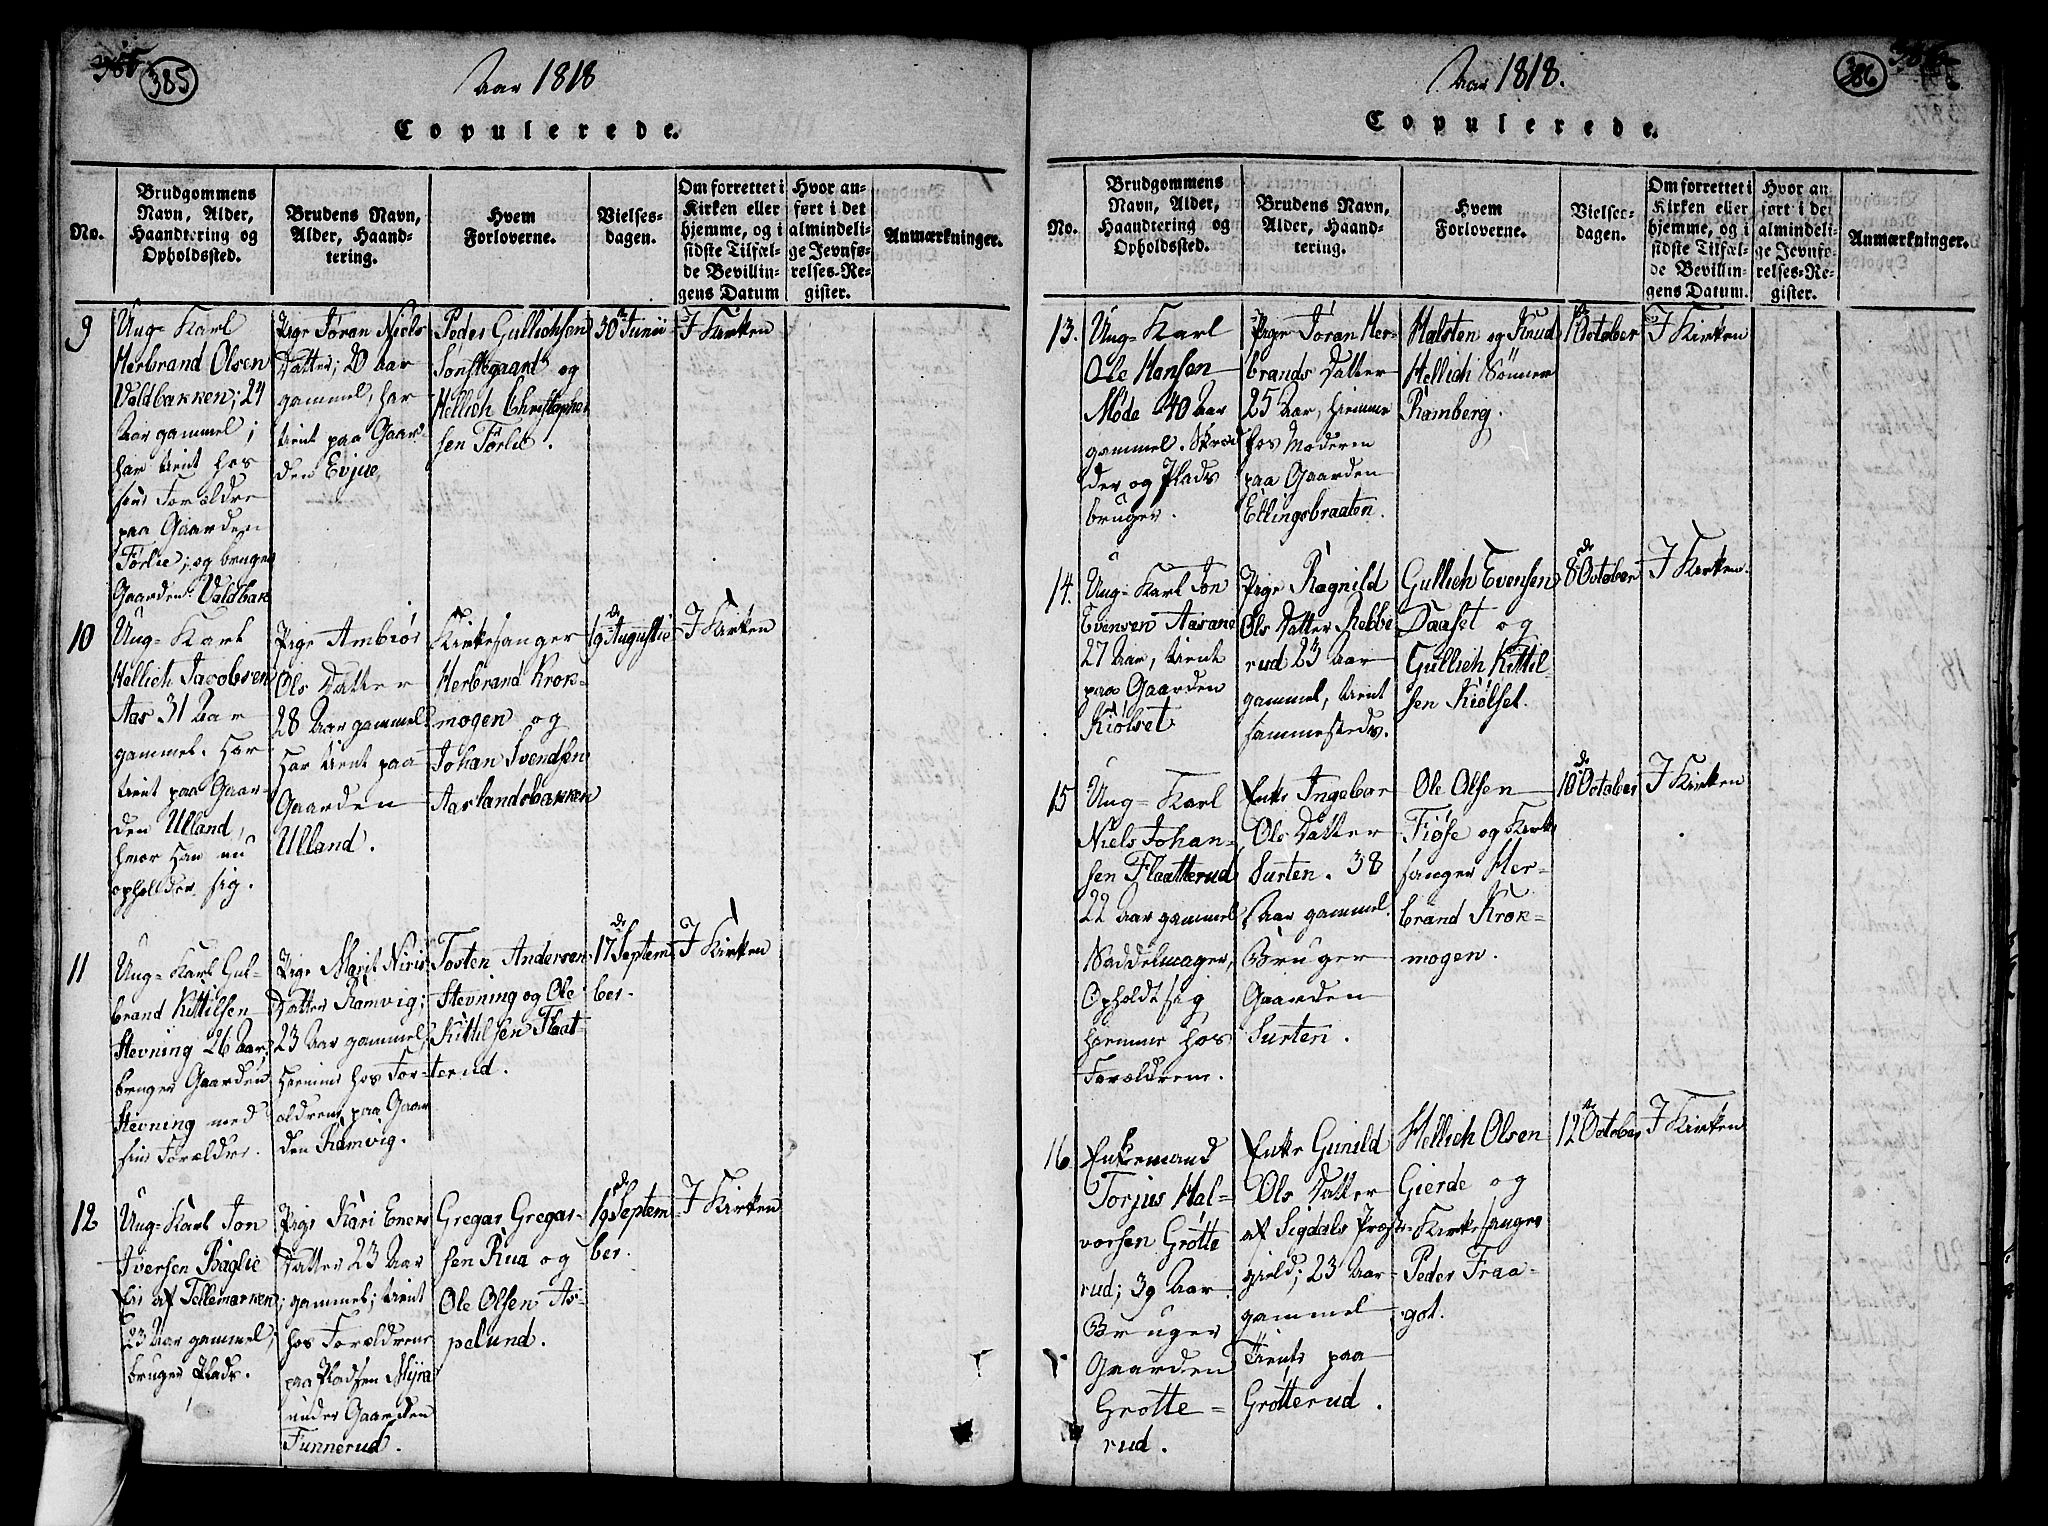 385
Aar 1818
Copulerede.
No.
Brudgommens
Navn, Alder,
Haandtering og
Opholdssted.
Brudens Navn,
Alder, Haand-
tering.
Hvem
Forloverne.
Vielses-
dagen.
Om forrettet i
Kirken eller
hjemme, og i
sidste Tilfæl-
de Bevillin-
gens Datum
Hvor an-
ført i det
almindeli-
ge Jevnfø-
relses-Re-
gister.
Anmærkninger.
9
Ung-Karl
Herbrand Olsen
Valdbakken; 24
Aar gammel;
har tient hos
sine Forældre
paa Gaarden
Førlie; og bruger
Gaarden Valdbak
Pige Jøran Niels
Datter; 20 aar
gammel, har
tient paa Gaar-
den Evjue,
Peder Gullichsen
Sønstegaard og
Hellich Christopher
sen Førlie.
30te Junii
I Kirken
10
Ung-Karl
Hellich Jacobsen
Aas 31 Aar
gammel. har
tient paa Gaar-
den Ulland,
hvor han nu
opholder sig.
Pige Ambiør
Ols Datter
28 Aar gammel
har tient paa
Gaarden
Ulland.
Kirkesanger
Herbrand Krok-
mogen og
Johan Svendsen
Aaslandsbakken
19de Augustii
I Kirken
11
Ung-Karl Gul-
brand Kittilsen
Stevning 26 Aar,
bruger Gaarden
Stevning med
sine Forældre.
Pige Marit Niris
Datter Ramvig;
23 Aar gammel,
hiemme hos For-
ældrene paa Gaar
den Ramvig.
Tosten Andersen
Stevning og Ole
Kittilsen Flaat-
terud.
17de Septem
ber.
I Kirken
12
Ung-Karl Jon
Iversen Baglie
En af Tellemarken
23 Aar gammel;
bruger Plads.
Pige Kari Eners
Datter 23 Aar
gammel; tient
hos Forældrene
paa Pladsen Myra
under Gaarden
Funnerud.
Gregar Gregar-
sen Rua og
Ole Olsen As-
pelund.
19de Septem
ber.
I Kirken
386
Aar 1818.
Copulerede.
No.
Brudgommens
Navn, Alder,
Haandtering og
Opholdssted.
Brudens Navn,
Alder, Haand-
tering.
Hvem
Forloverne.
Vielses-
dagen.
Om forrettet i
Kirken eller
hjemme, og i
sidste Tilfæl-
de Bevillin-
gens Datum.
Hvor an
ført i det
almindeli-
ge Jevnfø-
relses-Re-
gister.
Anmærkninger.
13.
Ung-Karl
Ole Hansen
Møde 40 Aar
gammel. Skræd
der og Plads
bruger.
Pige Jøran Her-
brands Datter
25 Aar, hiemme
hos Moderen
paa Gaarden
Ellingsbraaten.
Halsten og Knud
Hellich Sønner
Ramberg.
1ste October
I Kirken
14.
Ung-Karl Jon
Evensen Aasane
27 Aar, tient
paa Gaarden
Kiølset
Pige Ragnild
Ols Datter Rebbe
rud 23 Aar
gammel, tient
sammesteds.
Gullich Evensen
Daaset og
Gullich Kittil
sen Kiølset.
8de October
I Kirken.
15
Ung-Karl
Niels Johan-
sen Flaatterud
22 Aar gammel
Saddelmager,
Opholdt sig
hiemme hos
Forældrene.
Enke Ingebor
Ols Datter
Surten. 38
Aar gammel.
Bruger
Gaarden
Surten.
Ole Olsen
Fiøse og Kirk
sanger Her-
brand Krok-
mogen.
10de October
I Kirken
16.
Enkemand
Torjus Hal-
vorsen Grøtte
rud; 39 Aar
Bruger
Gaarden
Grøtte-
rud.
Enke Gunild
Ols Datter
af Sigdals Præste-
gield; 23 Aar
gammel
Tiente paa
Grøtterud.
Hellich Olsen
Gierde og
Kirkesanger
Peder Fraa-
got.
12te October
I Kirken